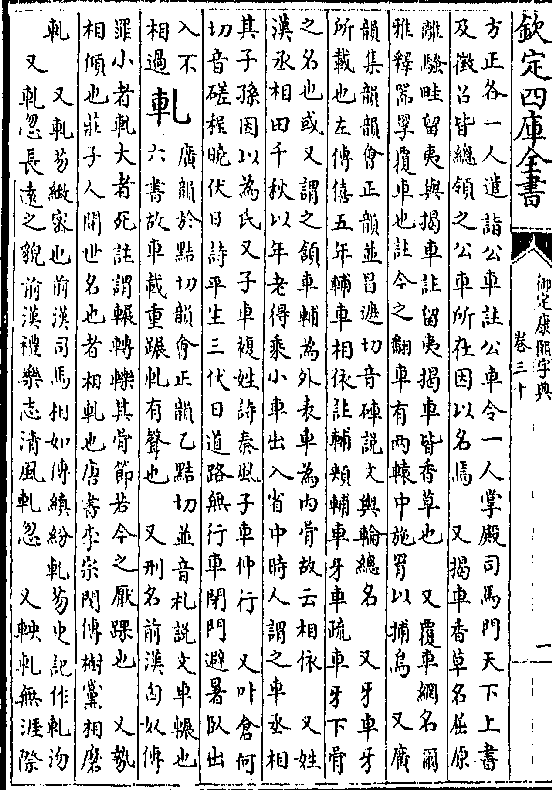 欽定四庫全書
御定康熙字典 卷三十 一
方正各一人遣詣公車註公車令一人掌殿司馬門天下上書
及徵召皆總領之公車所在因以名焉 又揭車香草名屈原
離騷畦留夷與揭車註留夷揭車皆香草也 又覆車網名爾
雅釋器罦覆車也註今之翻車有兩轅中施罥以捕鳥 又廣
韻集韻韻會正韻並昌遮切音硨說文與輪總名 又牙車牙
所載也左傳僖五年輔車相依註輔頰輔車牙車疏車牙下骨
之名也或又謂之頷車輔為外表車為內骨故云相依 又姓
漢丞相田千秋以年老得乘小車出入省中時人謂之車丞相
其子孫因以為氏又子車複姓詩秦風子車仲行 又叶倉何
切音磋程曉伏日詩平生三伏日道路無行車閉門避暑臥出
入不相過
軋 廣韻於黠切韻會正韻乙黠切並音札說文車輾也
六書故車載重蹍軋有聲也 又刑名前漢匈奴傳
罪小者軋大者死註謂輾轉轢其骨節若今之厭踝也 又勢
相傾也莊子人閒世名也者相軋也唐書李宗閔傳樹黨相磨
軋 又軋芴緻密也前漢司馬相如傳縝紛軋芴史記作軋沕
又軋忽長遠之貌前漢禮樂志清風軋忽 又軮軋無涯際